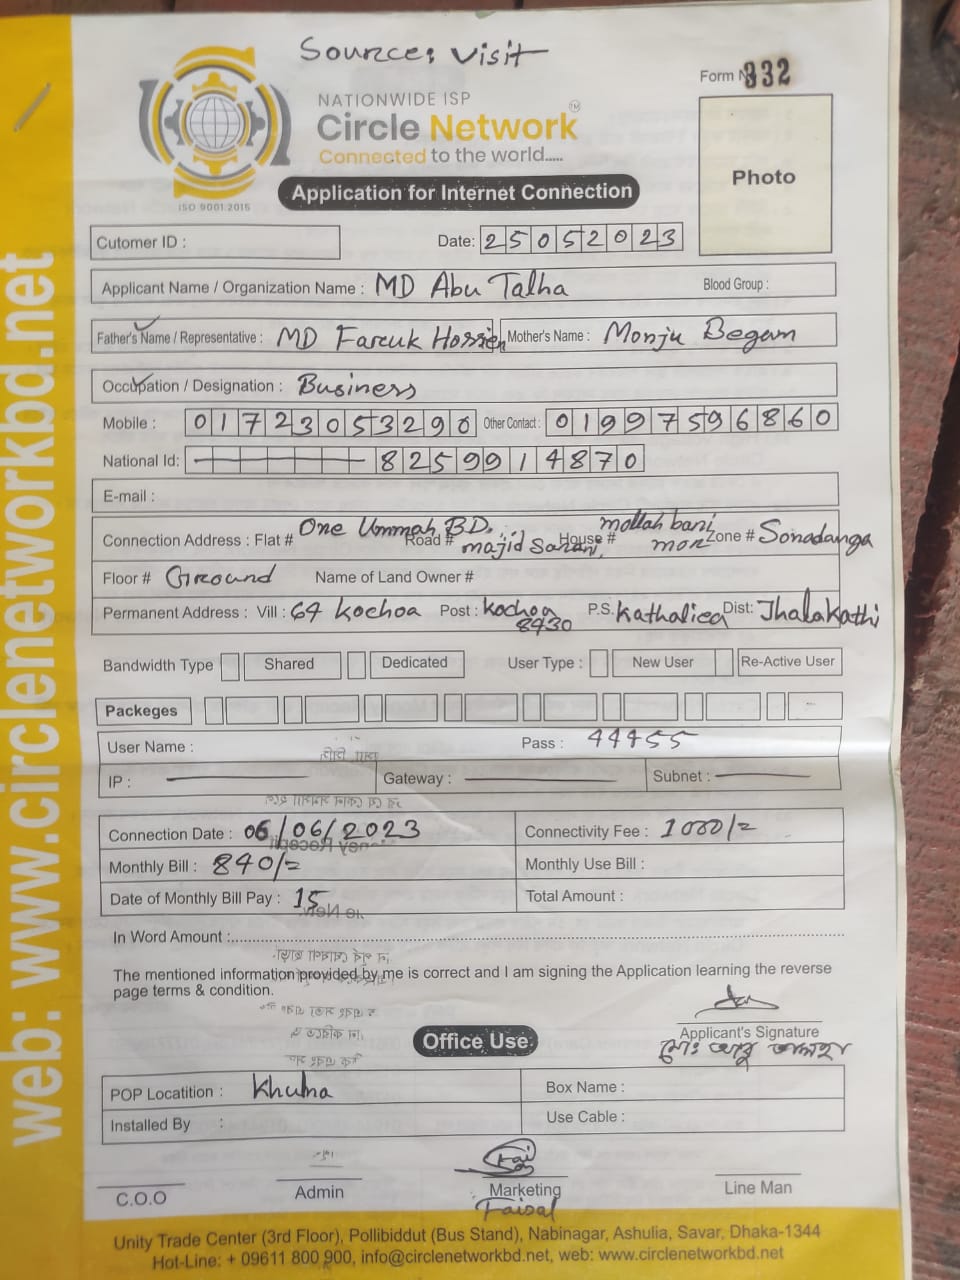 Source: Visit
Form N 932
NATIONWIDE ISP
Circle Network TM
Connected to the world.....
ISO 9001:2015
Application for Internet Connection
Photo
Cutomer ID :
Date: 25052023
Applicant Name / Organization Name : MD Abu Talha Blood Group :
Father's Name / Representative : MD Faruk Hossien Mother's Name : Monju Begam
Occupation / Designation : Business
Mobile : 01723053290 Other Contact : 01997596860
National Id: 8259914870
E-mail :
Connection Address : Flat # One Ummah BD. Road # majid Sarani, House # mollah bari mor Zone # Sonadanga
Floor # Ground Name of Land Owner #
Permanent Address : Vill : 64 Kochoa Post : Kochoa 8430 P.S. Kathaliea Dist: Jhalakathi
Bandwidth Type Shared Dedicated User Type : New User Re-Active User
Packeges
User Name : Pass : 44455
IP : Gateway : Subnet :
Connection Date : 06/06/2023 Connectivity Fee : 1000/=
Monthly Bill : 840/= Monthly Use Bill :
Date of Monthly Bill Pay : 15 Total Amount :
In Word Amount :
The mentioned information provided by me is correct and I am signing the Application learning the reverse
page terms & condition.
Applicant's Signature
মোঃ আবু তালহা
Office Use
POP Locatition : Khulna Box Name :
Installed By : Use Cable :
C.O.O Admin Marketing Line Man
Faisal
Unity Trade Center (3rd Floor), Pollibiddut (Bus Stand), Nabinagar, Ashulia, Savar, Dhaka-1344
Hot-Line: + 09611 800 900, info@circlenetworkbd.net, web: www.circlenetworkbd.net
web: www.circlenetworkbd.net